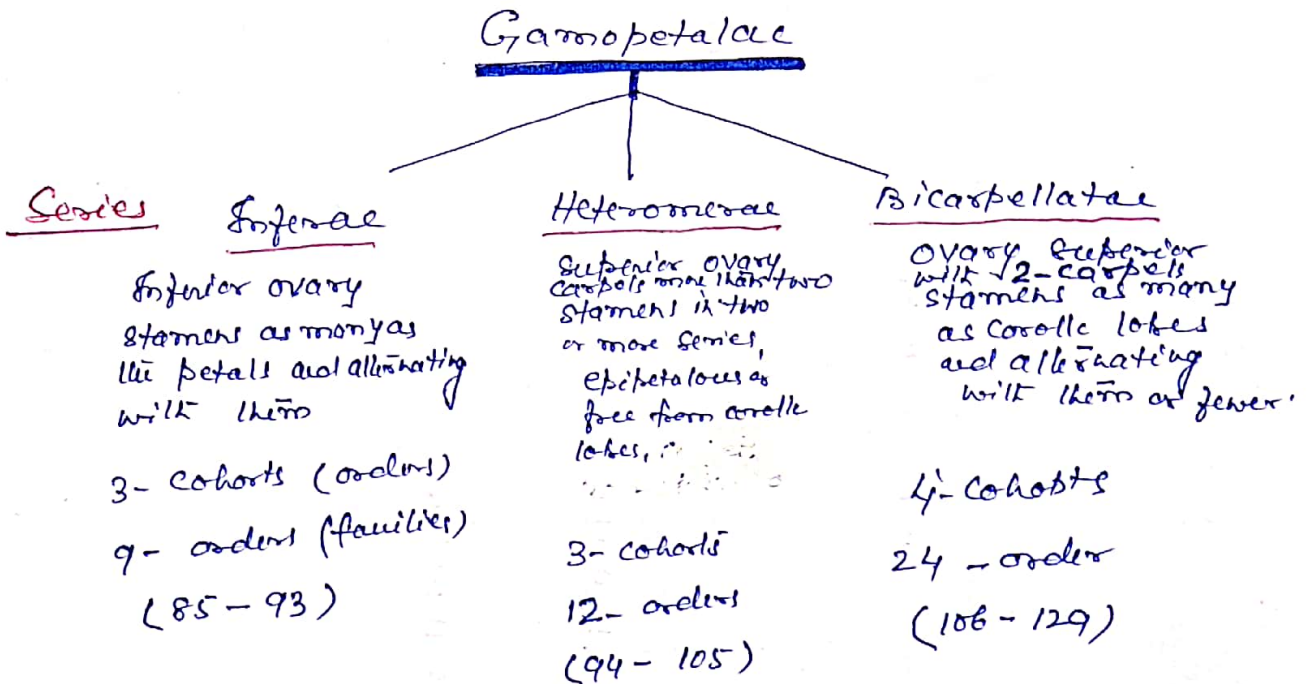 Gamopetalae
Series
Inferae
Inferior ovary
stamens as many as
the petals and alternating
with them
3- cohorts (orders)
9- orders (families)
(85-93)
Heteromerae
Superior ovary
carpels more than two
stamens in two
or more series,
epipetalous or
free from corolla
lobes,
3- cohorts
12- orders
(94- 105)
Bicarpellatae
Ovary superior
with 2-carpels
stamens as many
as corolla lobes
and alternating
with them or fewer.
4- cohorts
24 - order
(106-129)